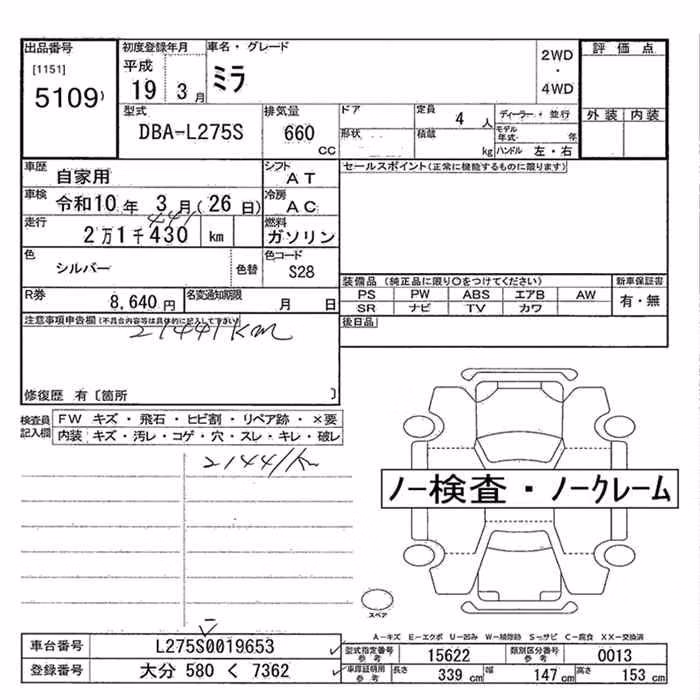 出品番号 初度登録年月 車名・グレード 2WD ・ 4WD 評価点
[1151] 平成 ミラ
5109) 19 3月
型式 排気量 ドア 定員 4人 ディーラー・並行 外装 内装
DBA-L275S 660 CC 形状 積載 kg モデル年式 年
ハンドル 左・右
車歴 自家用 シフト AT セールスポイント(正常に機能するものに限ります)
車検 令和10年 3月(26日) 冷房 AC
441
走行 2万1千430 km 燃料 ガソリン
色 シルバー 色替 色コード S28
装備品(純正品に限り○をつけてください) 新車保証書
R券 8,640円 名変通知期限 月 日 PS PW ABS エアB AW 有・無
SR ナビ TV カワ
注意事項申告欄(不具合内容等は具体的に記入して下さい) 後日品
21441km
修復歴 有〔箇所 〕
検査員記入欄 FW キズ・飛石・ヒビ割・リペア跡・×要
内装 キズ・汚レ・コゲ・穴・スレ・キレ・破レ
21441km
ノー検査・ノークレーム
スペア
A-キズ E-エクボ U-凹み W-補修跡 S-サビ C-腐食 XX-交換済
車台番号 L275S0019653 型式指定番号 参考 15622 類別区分番号 参考 0013
登録番号 大分 580 く 7362 車庫証明用 参考 長さ 339 cm 幅 147 cm 高さ 153 cm